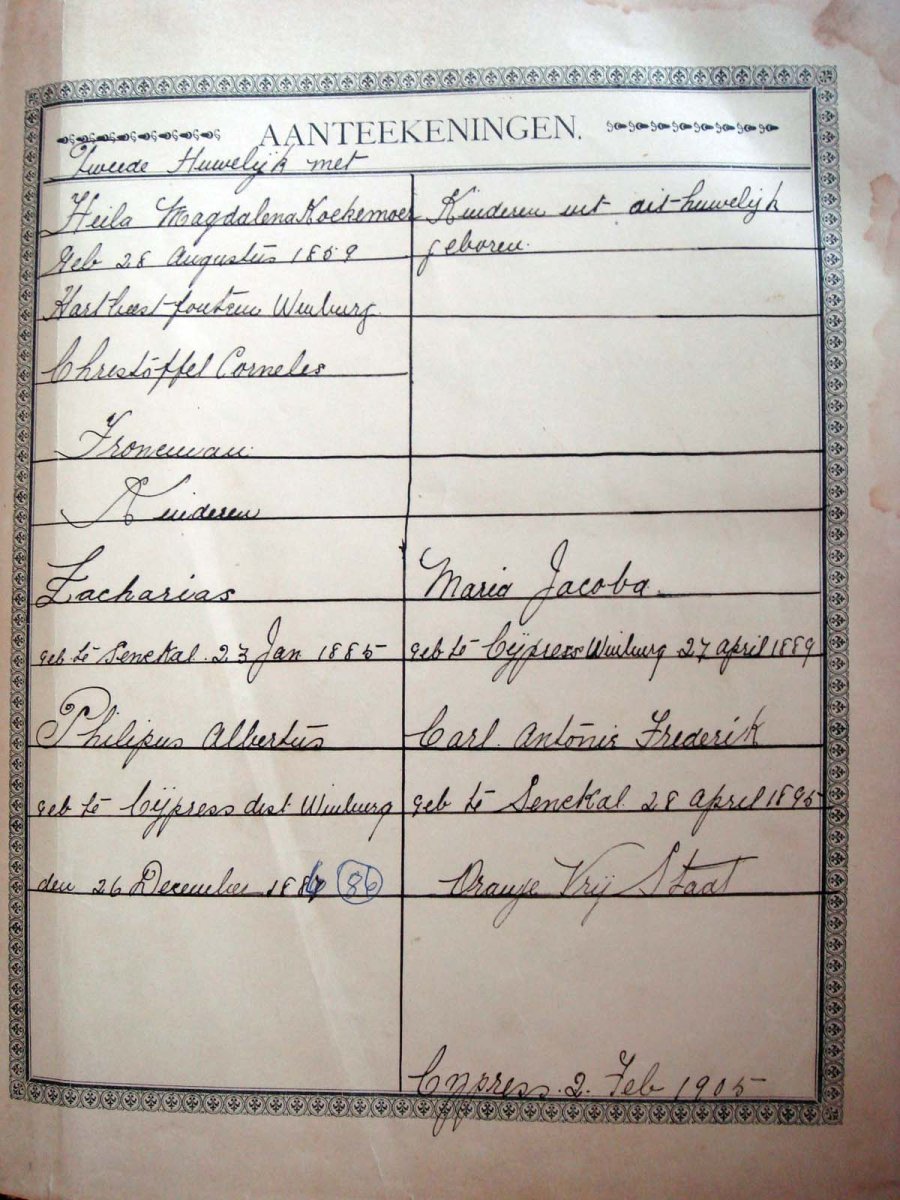 AANTEEKENINGEN.
Tweede Huwelijk met
Heila Magdalena Koekemoer
geb 28 Augustus 1859
Hartbeest-fontein Winburg.
Christoffel Corneles
Froneman
Kinderen
Zacharias
geb te Senekal. 23 Jan 1885
Philipus Albertus
geb te Cÿpress dist Winburg
den 26 December 188 86
Kinderen uit dit huwelijk
geboren.
Maria Jacoba.
geb te Cÿpress Winburg 27 april 1889
Carl. Antonie Frederik
geb te Senekal 28 april 1895
Oranje Vrij Staat
Cypress. 2. Feb 1905